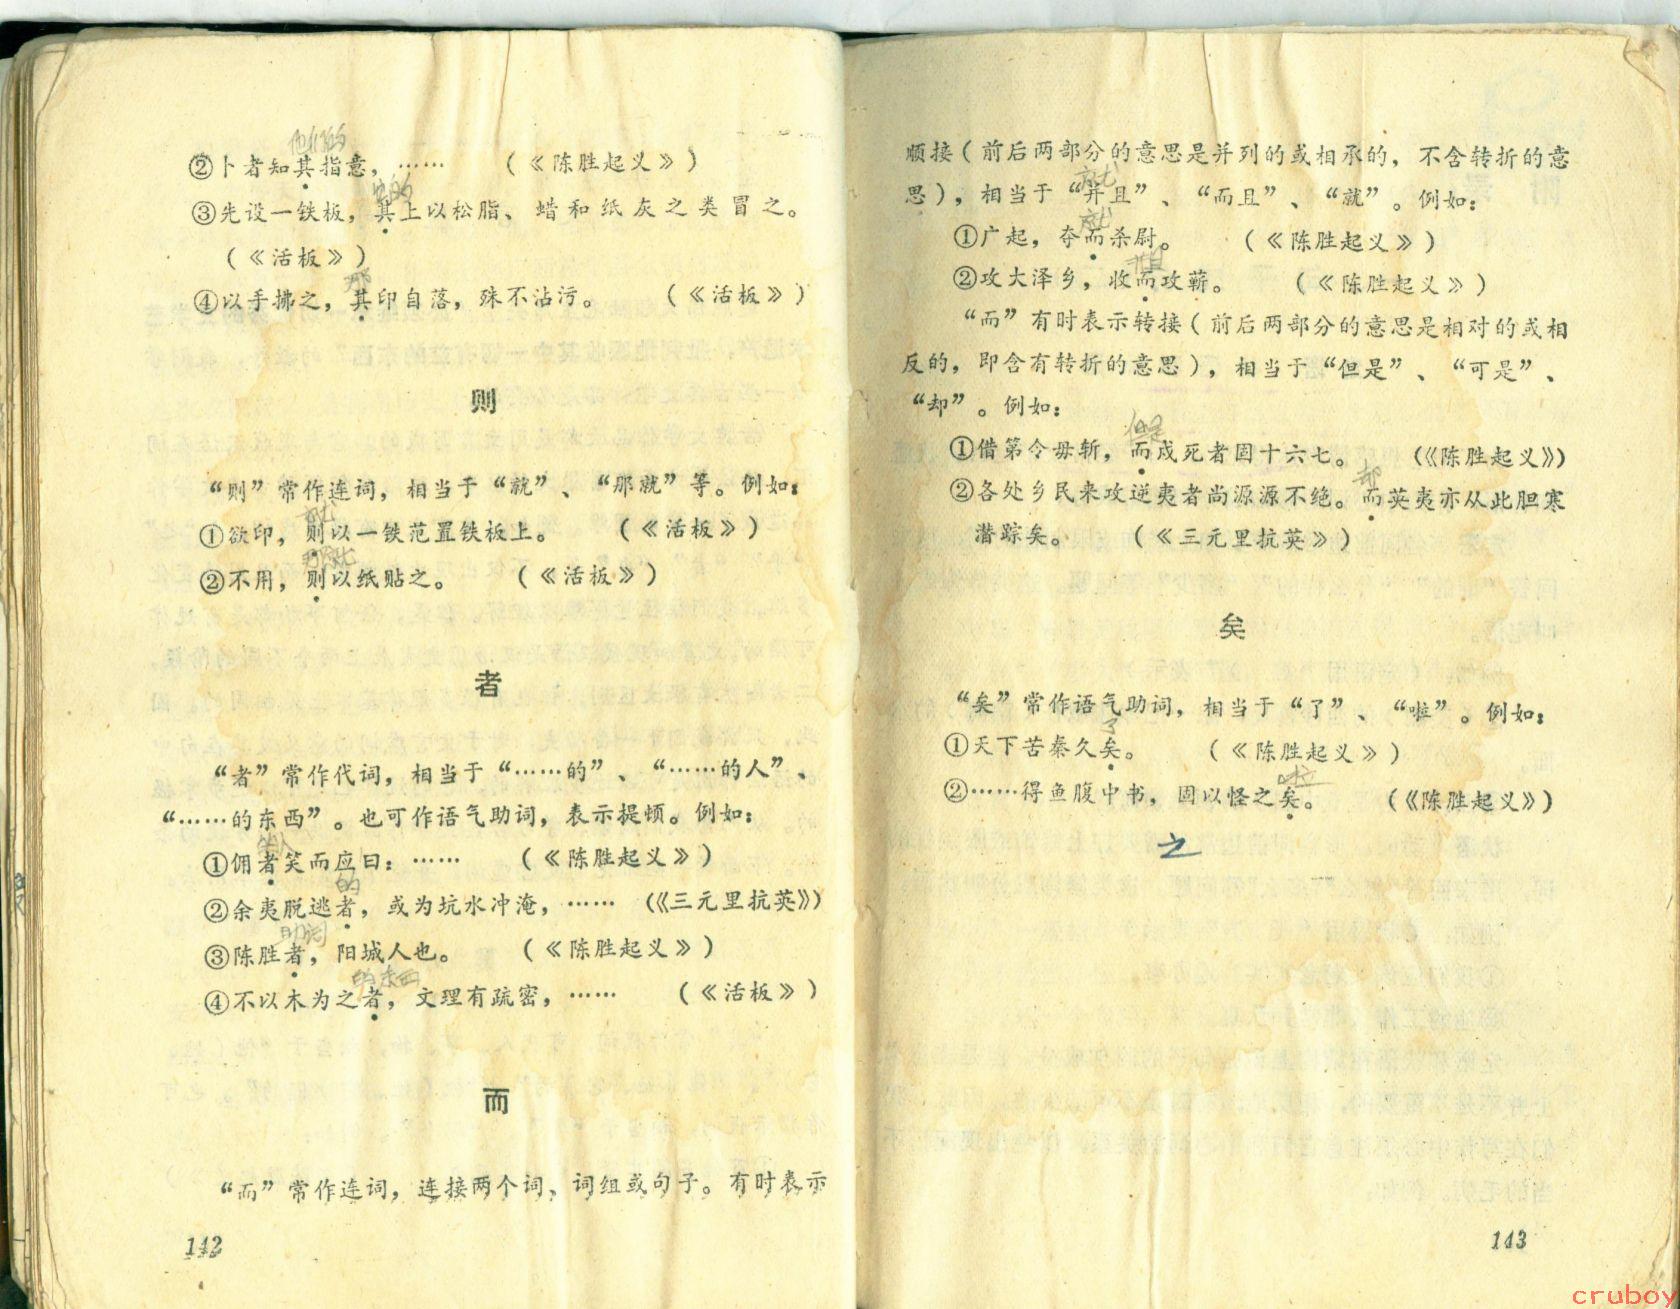 他们的
②卜者知其指意，……　（《陈胜起义》）
它的
③先设一铁板，其上以松脂、蜡和纸灰之类冒之。
（《活板》）
那
④以手拂之，其印自落，殊不沾污。　（《活板》）
则
“则”常作连词，相当于“就”、“那就”等。例如：
就
①欲印，则以一铁范置铁板上。　（《活板》）
那就
②不用，则以纸贴之。　（《活板》）
者
“者”常作代词，相当于“……的”、“……的人”、
“……的东西”。也可作语气助词，表示提顿。例如：
①佣者笑而应曰：……　（《陈胜起义》）
的
②余夷脱逃者，或为坑水冲淹，……　（《三元里抗英》）
助词
③陈胜者，阳城人也。　（《陈胜起义》）
的东西
④不以木为之者，文理有疏密，……　（《活板》）
而
“而”常作连词，连接两个词、词组或句子。有时表示
142
顺接（前后两部分的意思是并列的或相承的，不含转折的意
思），相当于“并且”、“而且”、“就”。例如：
就
①广起，夺而杀尉。　（《陈胜起义》）
②攻大泽乡，收而攻蕲。　（《陈胜起义》）
“而”有时表示转接（前后两部分的意思是相对的或相
反的，即含有转折的意思），相当于“但是”、“可是”、
“却”。例如：
但是
①借第令毋斩，而戍死者固十六七。　（《陈胜起义》）
却
②各处乡民来攻逆夷者尚源源不绝。而英夷亦从此胆寒
潜踪矣。　（《三元里抗英》）
矣
“矣”常作语气助词，相当于“了”、“啦”。例如：
了
①天下苦秦久矣。　（《陈胜起义》）
啦
②……得鱼腹中书，固以怪之矣。　（《陈胜起义》）
之
143
cruboy